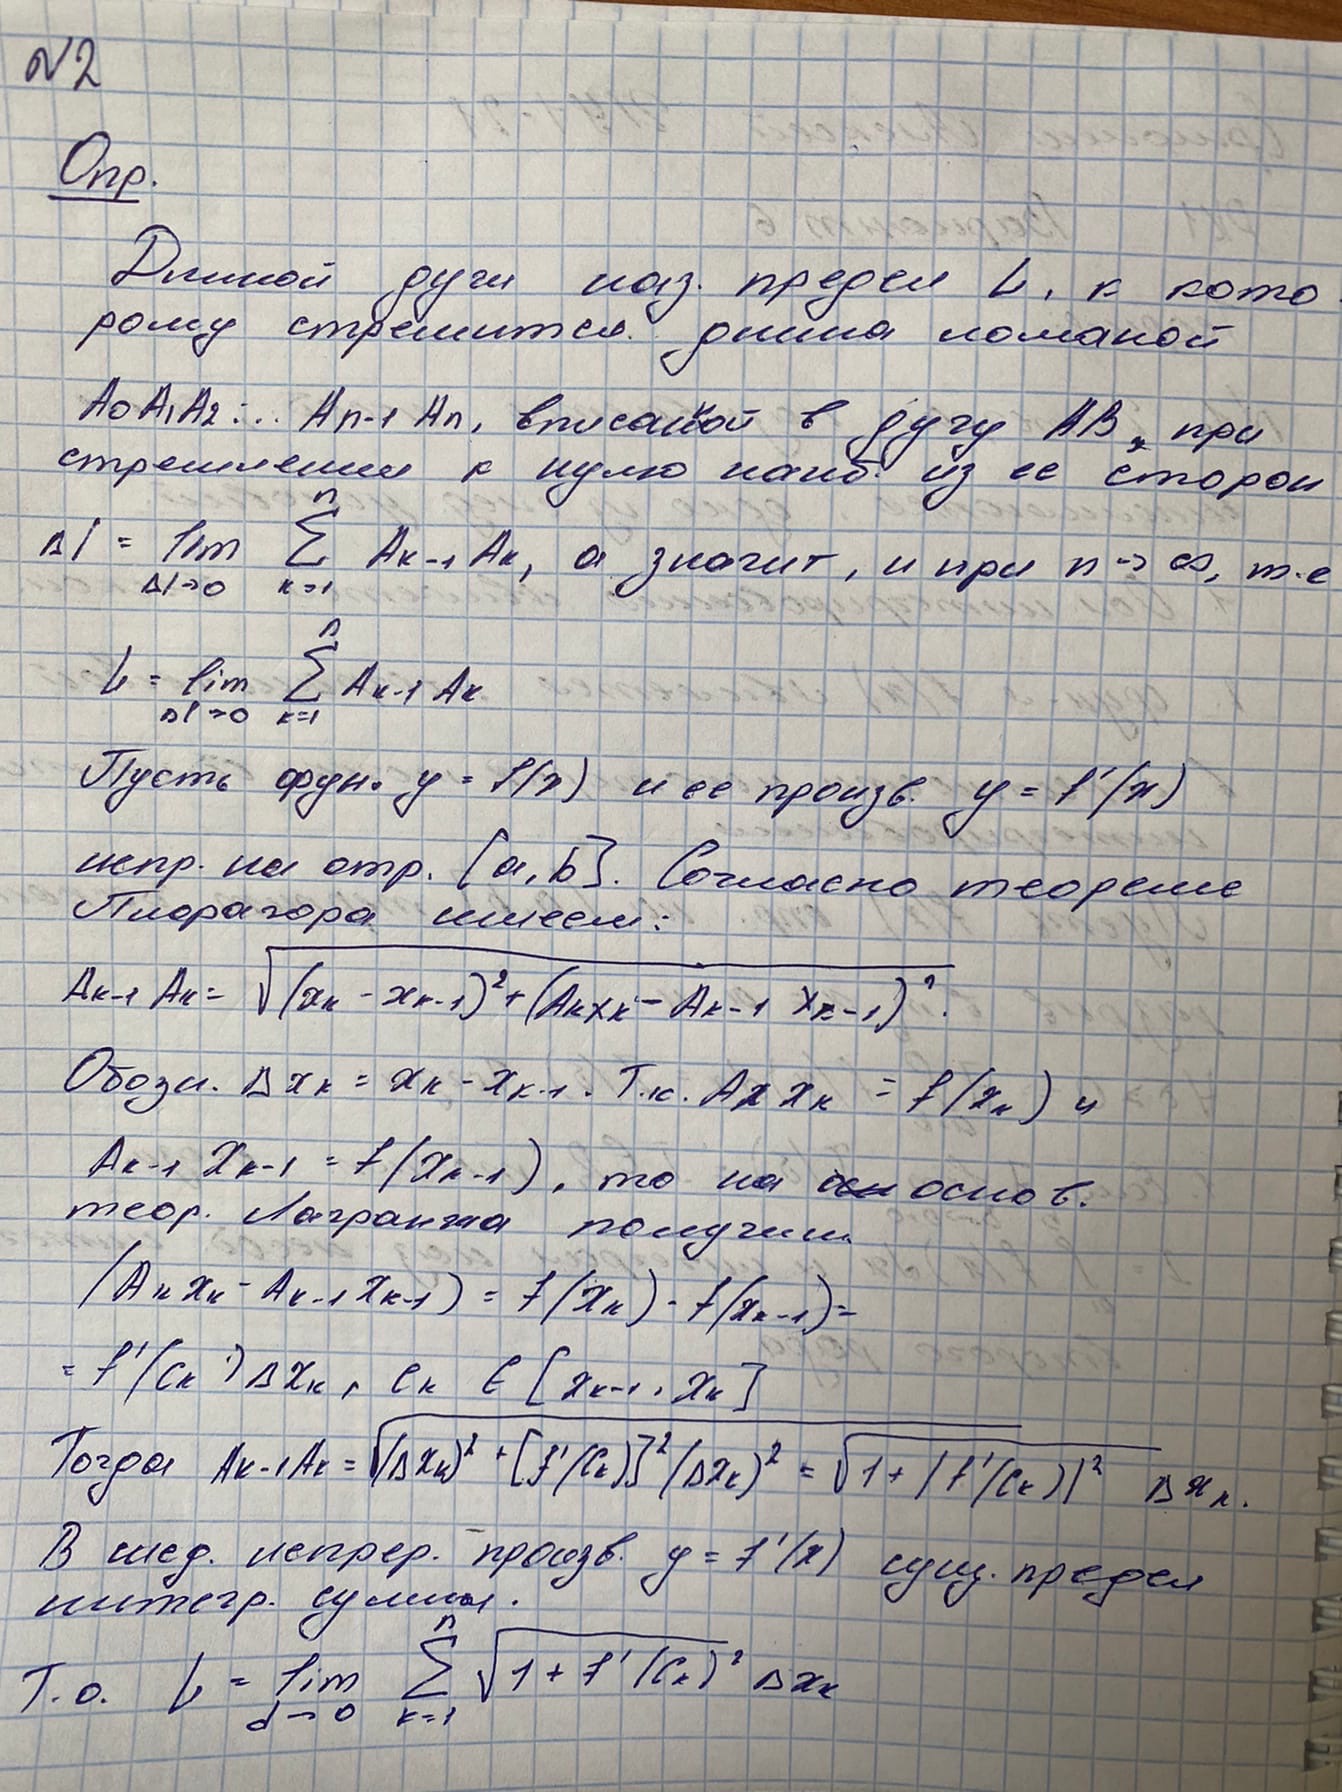 №2
Опр.
Длиной дуги наз. предел L, к кото
рому стремится длина ломаной
A₀A₁A₂... Aₙ₋₁Aₙ, вписаной в дугу AB, при
стремлении к нулю наиб. из ее сторон
Δl = lim_{Δl→0} ∑_{k=1}^{n} Aₖ₋₁Aₖ, а значит, и при n→∞, т.е
L = lim_{Δl→0} ∑_{k=1}^{n} Aₖ₋₁Aₖ
Пусть фун. y = f(x) и ее произв. y = f'(x)
непр. на отр. [a,b]. Согласно теореме
Пифагора имеем:
Aₖ₋₁Aₖ = √((xₖ - xₖ₋₁)² + (AₖXₖ - Aₖ₋₁Xₖ₋₁)²).
Обозн. Δxₖ = xₖ - xₖ₋₁. Т.к. AₖXₖ = f(xₖ) и
Aₖ₋₁Xₖ₋₁ = f(xₖ₋₁), то на основ.
теор. Лагранжа получим
(AₖXₖ - Aₖ₋₁Xₖ₋₁) = f(xₖ) - f(xₖ₋₁) =
= f'(cₖ)Δxₖ, cₖ ∈ [xₖ₋₁, xₖ]
Тогда Aₖ₋₁Aₖ = √((Δxₖ)² + [f'(cₖ)]²(Δxₖ)²) = √(1 + |f'(cₖ)|²) Δxₖ.
В след. непрер. произв. y = f'(x) сущ. предел
интегр. суммы.
Т.о. L = lim_{d→0} ∑_{k=1}^{n} √(1 + f'(cₖ)²) Δxₖ